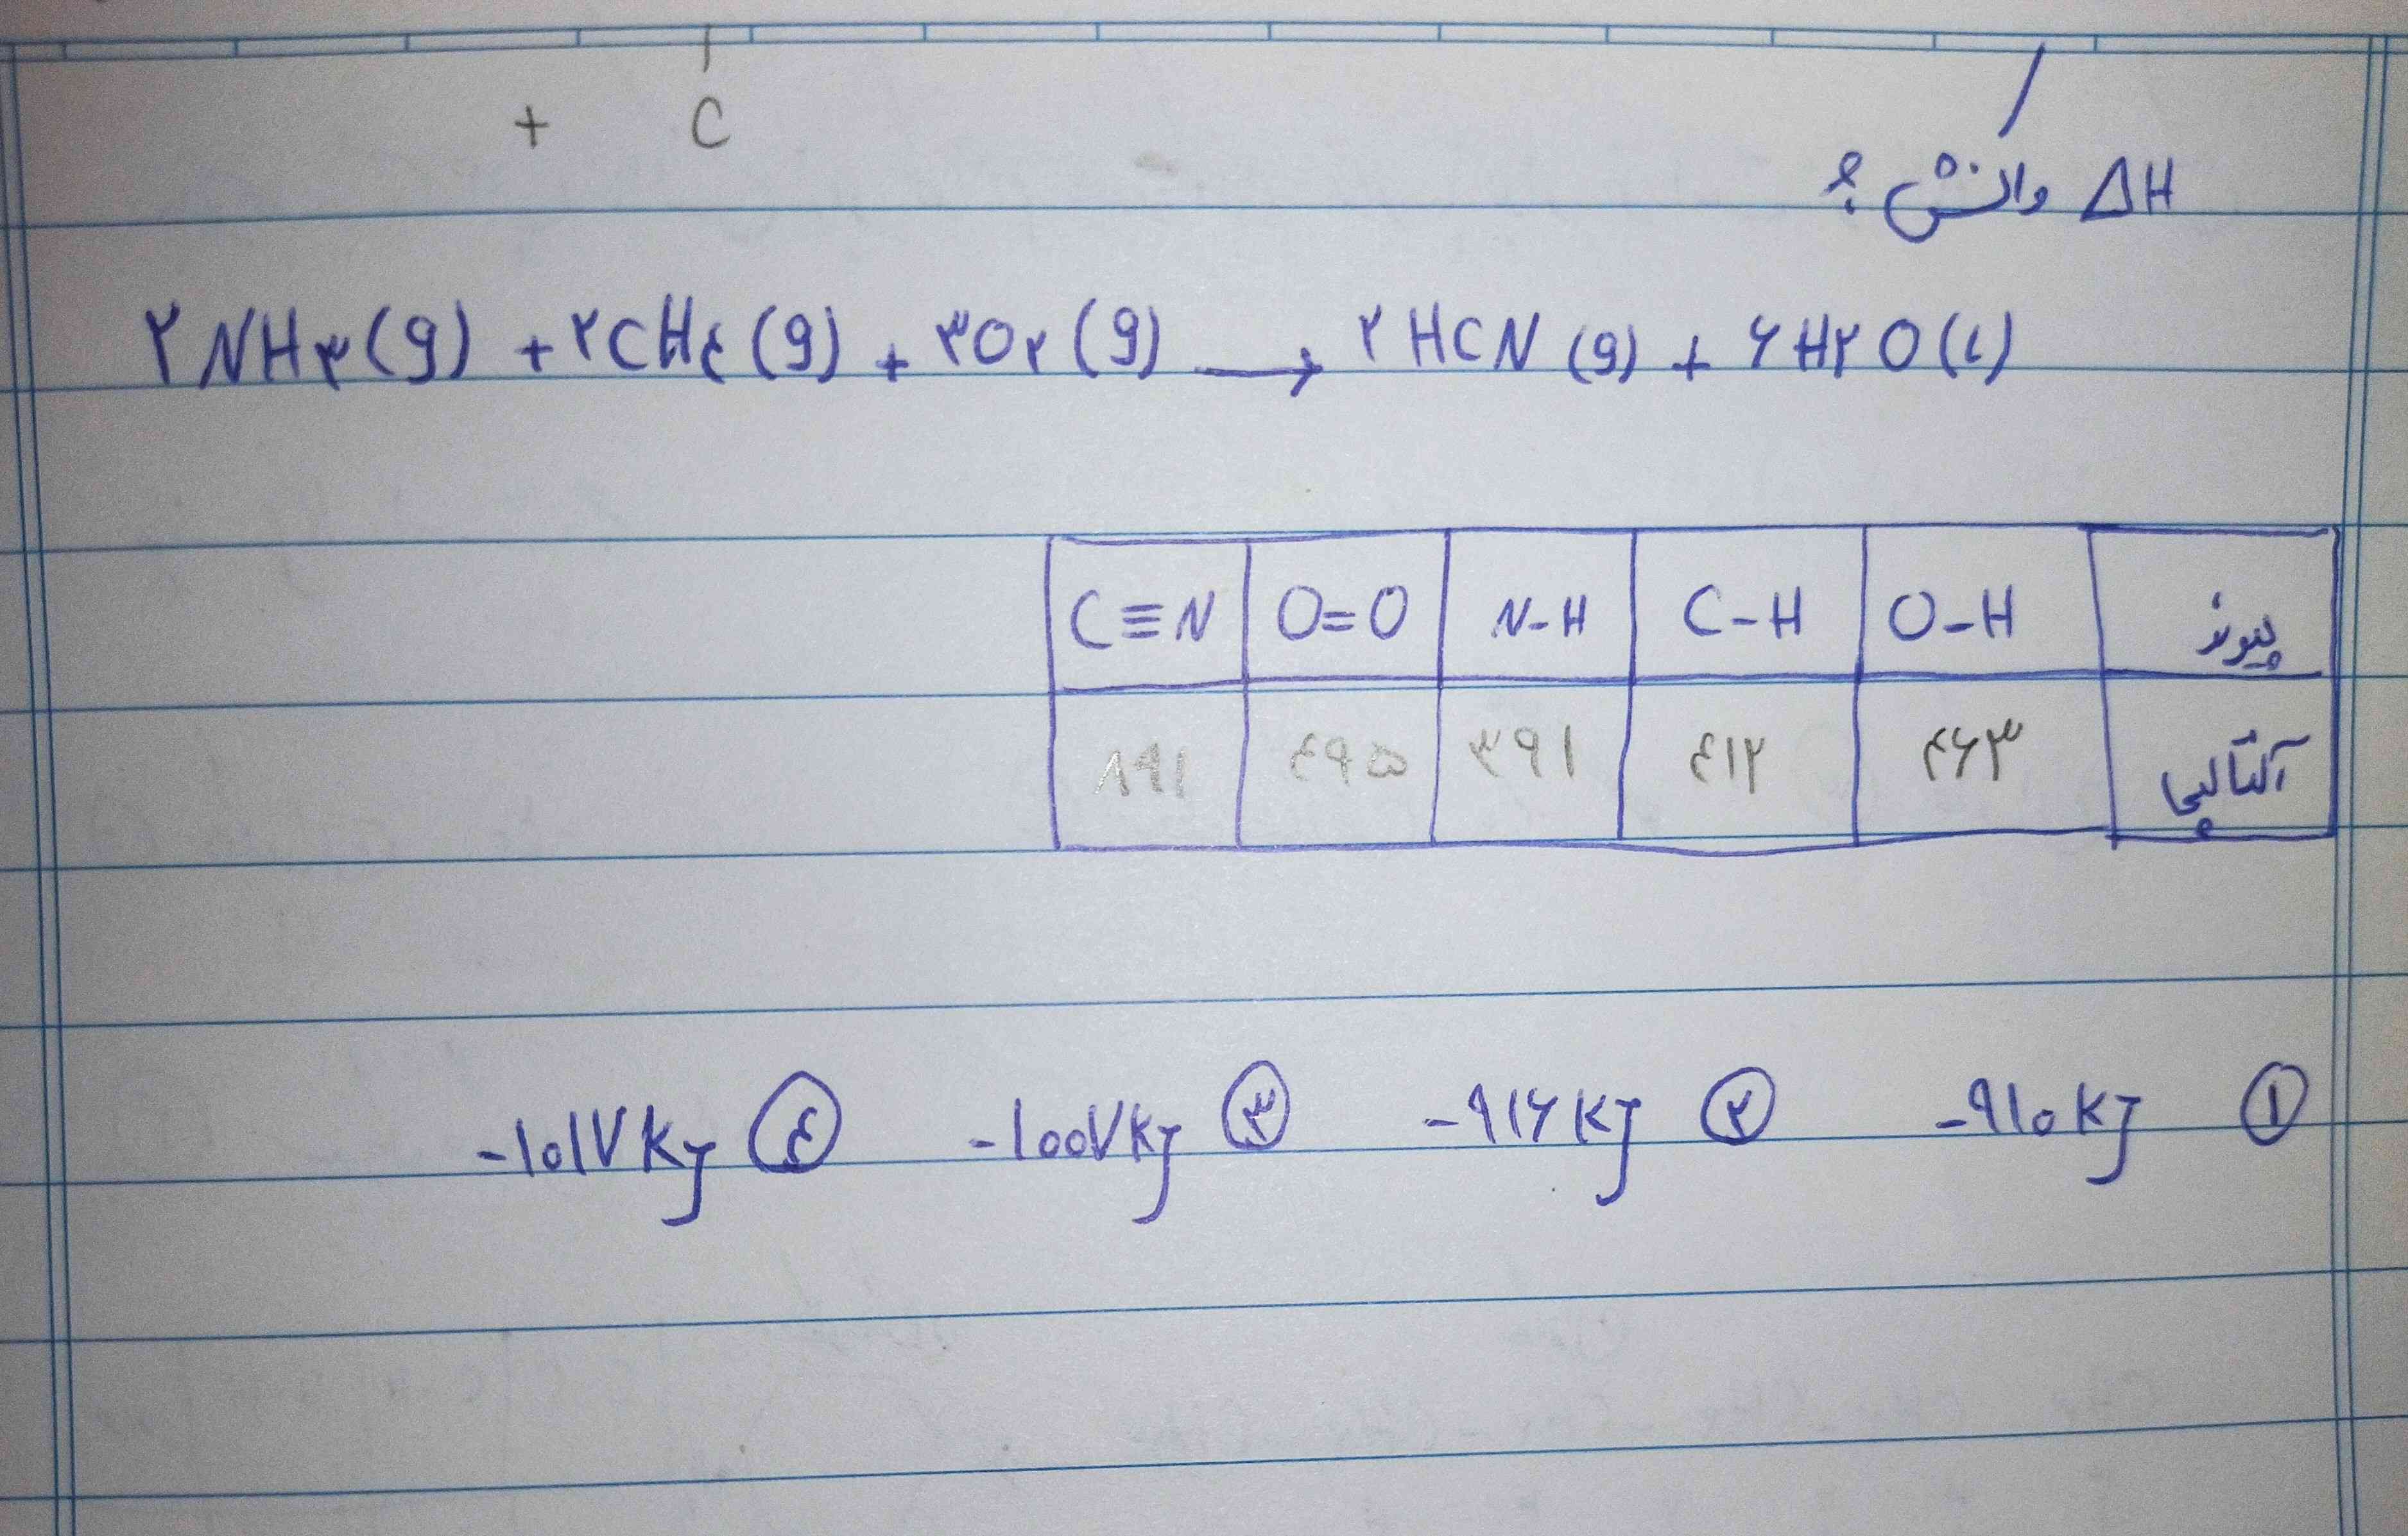 + C
ΔH واکنش ؟
۲NH۳(g) + ۲CH۴(g) + ۳O۲(g) → ۲HCN(g) + ۶H۲O(l)
پیوند O-H C-H N-H O=O C≡N
آنتالپی ۴۶۳ ۴۱۲ ۳۹۱ ۴۹۵ ۸۹۱
① -۹۱۰kJ ② -۹۱۶kJ ③ -۱۰۰۷kJ ④ -۱۰۱۷kJ